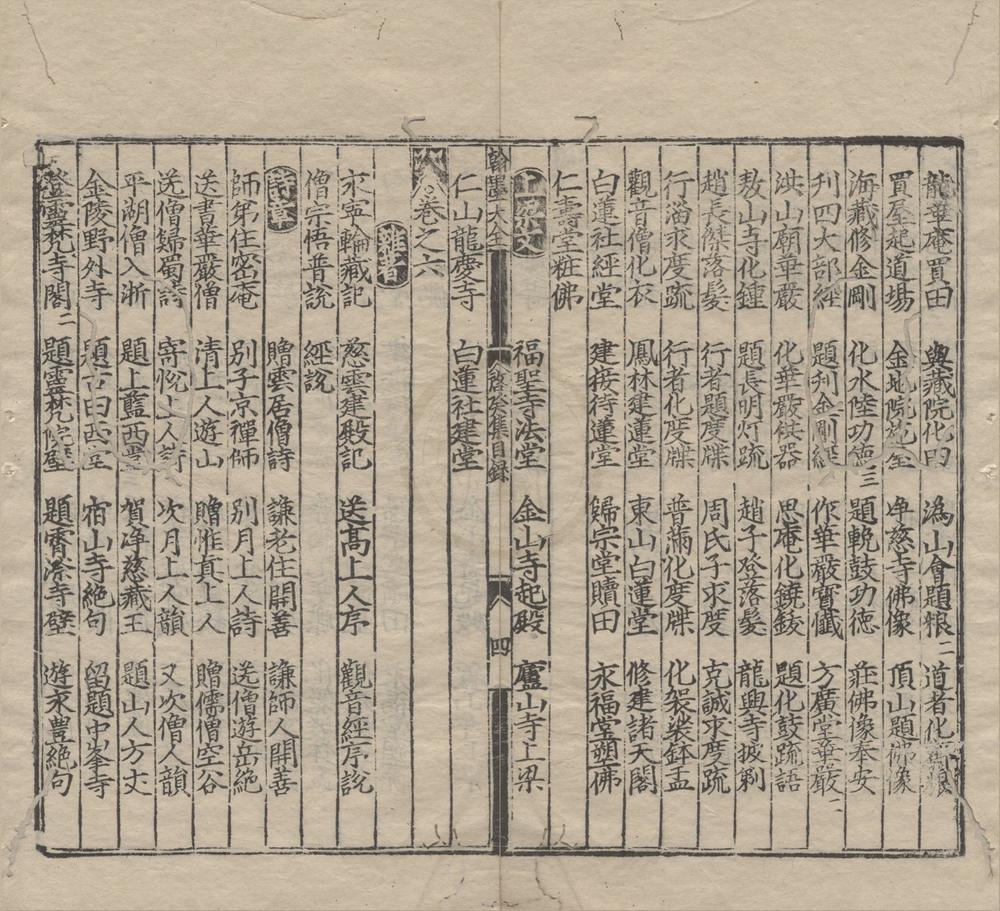 龍華庵買田 輿藏院化田 潙山會題粮二 道者化齋粮
買屋起道場 金地院化金 淨慈寺佛像 頂山題佛像
海藏修金剛 化水陸功德三 題輓鼓功德 莊佛像奉安
刋四大部經 題刋金剛經 作華嚴寳懺 方廣堂華嚴二
洪山廟華嚴 化華嚴供器 思庵化鐃鈸 題化鼓疏語
敖山寺化鍾 題長明灯疏 趙子登落髮 龍興寺披剃
趙長傑落髮 行者題度牒 周氏子求度 克誠求度疏
行淄求度疏 行者化度牒 普滿化度牒 化袈裟鉢盂
觀音僧化衣 鳳林建蓮堂 東山白蓮堂 修建諸天閣
白蓮社經堂 建接待蓮堂 歸宗堂贖田 永福堂塑佛
仁壽堂粧佛
上梁文 福聖寺法堂 金山寺起殿 廬山寺上梁
翰墨大全 後癸集目録 八 四
仁山龍慶寺 白蓮社建堂
卷之六
雜著
永寧輪藏記 慈雲建殿記 送高上人序 觀音經序説
僧宗悟普説 經説
詩章 贈雲居僧詩 謙老住開善 謙師人開善
師弟住密庵 别子京禪師 别月上人詩 送僧遊岳絶
送書華嚴僧 清上人遊山 贈惟真上人 贈儒僧空谷
送僧歸蜀詩 寄悦上人詩 次月上人韻 又次僧人韻
平湖僧入浙 題上藍西堂 賀净慈藏王 題山人方丈
金陵野外寺 題古田西堂 宿山寺絶句 留題中峯寺
登靈梵寺閣二 題靈梵院壁 題霄漈寺壁 遊永豊絶句